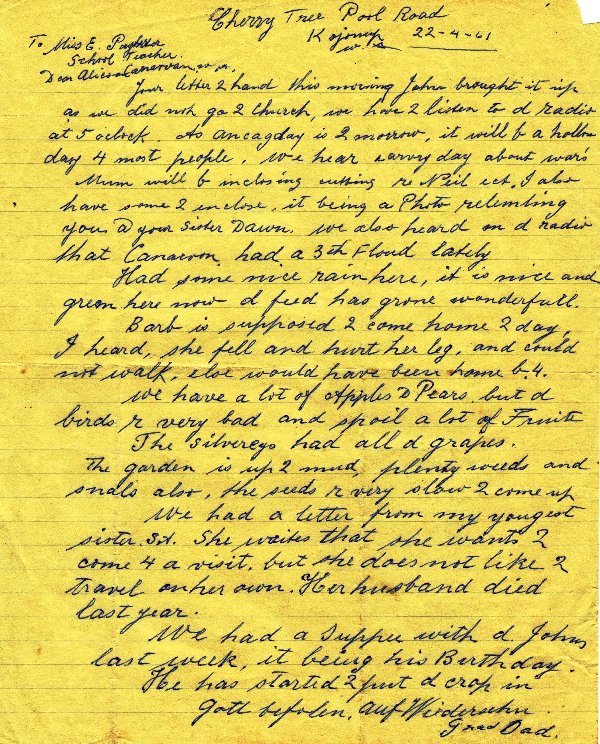 Cherry Tree Pool Road
Kojonup
W.A. 22-4-61
To Miss E.
School Teacher
Dear Alice Canarvan W.A.
Your letter 2 hand this morning John brought it up
as we did not go 2 Church, we have 2 listen to d radio
at 5 oclock. As ancagday is 2 morrow, it will b a hollow
day 4 most people. We hear earvry day about war's
Mum will b inclosing cutting re Neil ect, I also
have some 2 enclose, it being a Photo relembling
you @ your Sister Dawn. We also heard on d radio
that Canarvon had a 3th Floud lately
Had some nice rain here, it is nice and
green here now d feed has grone wonderfull.
Barb is supposed 2 come home 2 day,
I heard, she fell and hurt her leg, and could
not walk, else would have been home b. 4.
We have a lot of Apples D Pears but d
birds r very bad and spoil a lot of Fruite
The Silvereys had all d grapes.
The garden is up 2 mud, plenty weeds and
snals also, the seeds r very slow 2 come up
We had a letter from my yougest
sister. S.A. She writes that she wants 2
come 4 a visit, but she does not like 2
travel on her own. Her husband died
last year.
We had a Supper with d Johns
last week, it being his Birthday.
He has started 2 put d crop in
Gott befolen, Auf Wiedersehn
Grad Dad.